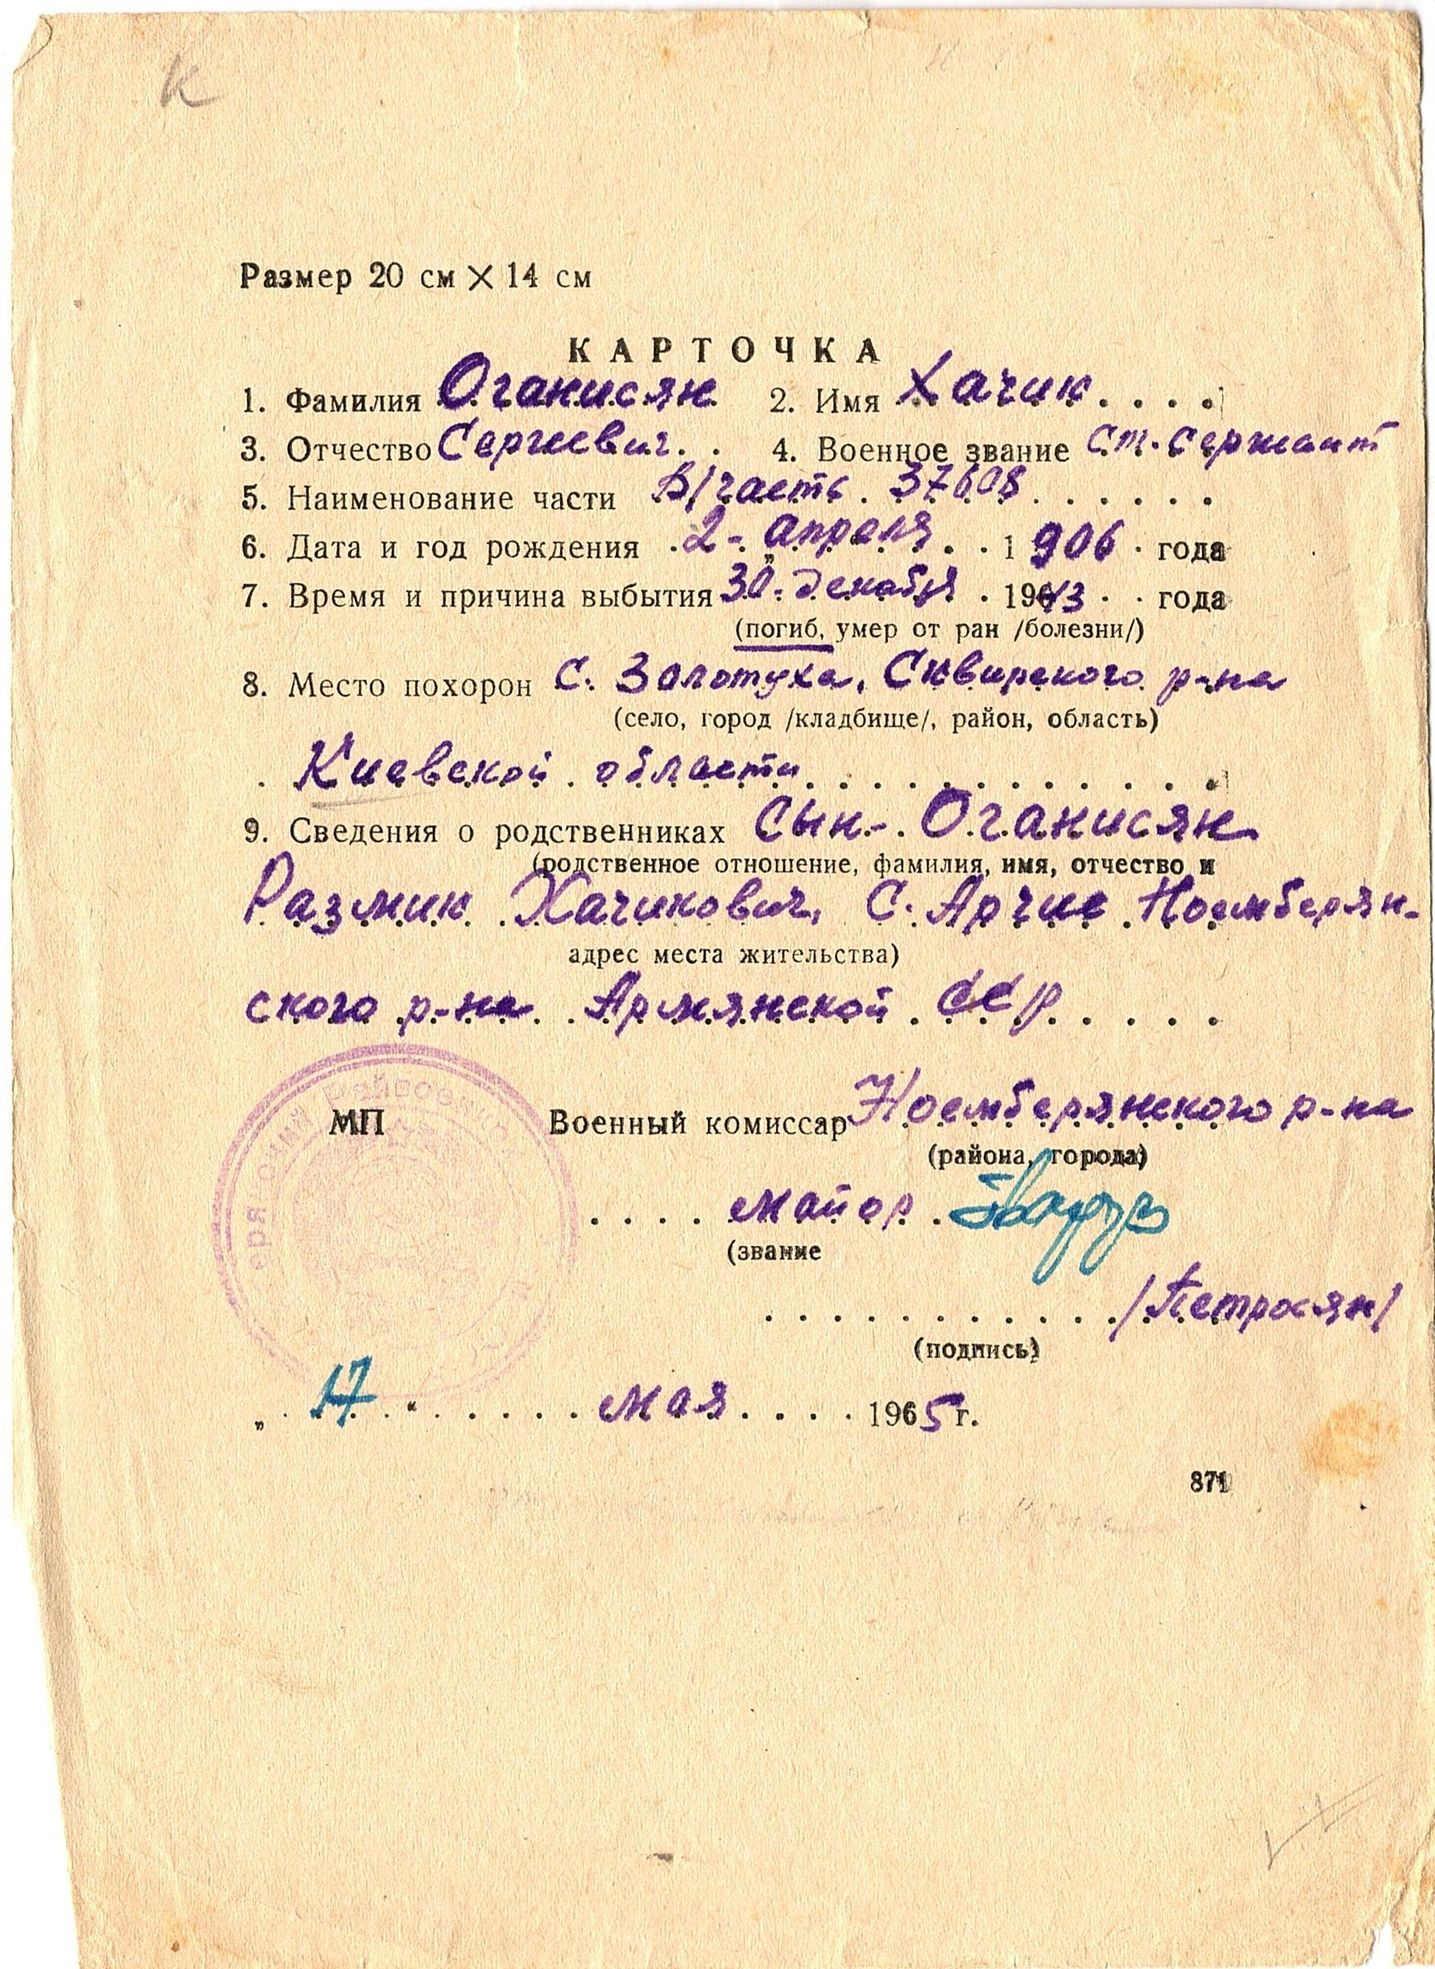 К
Размер 20 см × 14 см
КАРТОЧКА
1. Фамилия Оганисян 2. Имя Хачик
3. Отчество Сергеевич 4. Военное звание ст. сержант
5. Наименование части В/часть 37608
6. Дата и год рождения 2 апреля 1906 года
7. Время и причина выбытия 30 декабря 1943 года
(погиб, умер от ран /болезни/)
8. Место похорон с. Золотуха, Сквирского р-на
(село, город /кладбище/, район, область)
Киевской области
9. Сведения о родственниках Сын - Оганисян
(родственное отношение, фамилия, имя, отчество и
Размик Хачикович, с. Арчис Ноемберян-
адрес места жительства)
ского р-на Армянской ССР
МП Военный комиссар Ноемберянского р-на
(района, города)
майор
(звание
/Петросян/
(подпись)
„ 17 “ мая 1965 г.
871